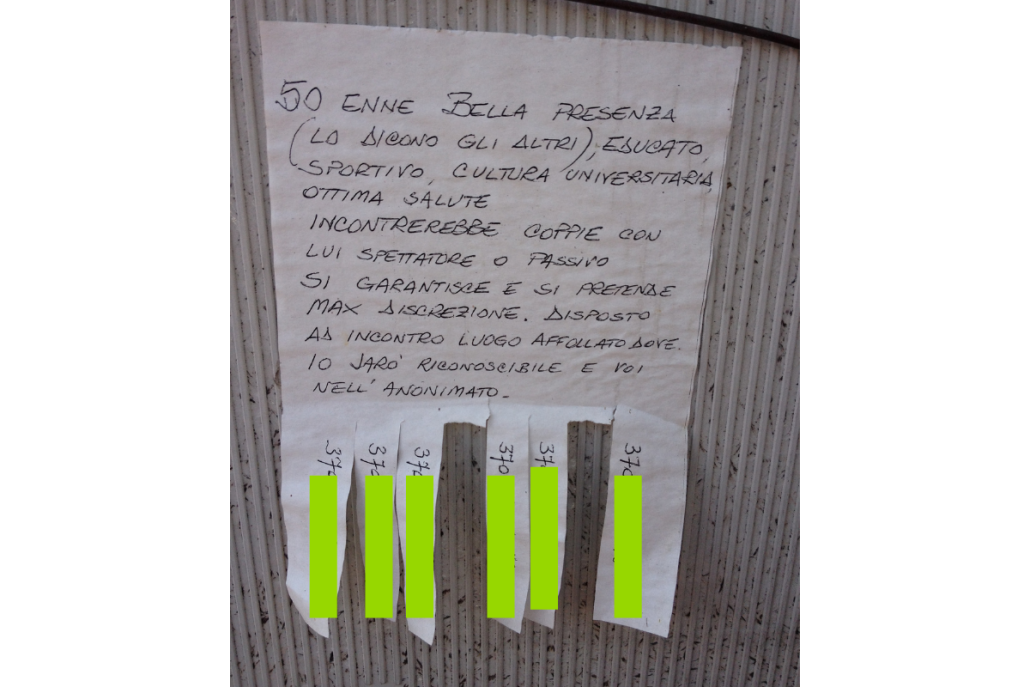 50 ENNE BELLA PRESENZA
(LO DICONO GLI ALTRI), EDUCATO,
SPORTIVO, CULTURA UNIVERSITARIA
OTTIMA SALUTE
INCONTREREBBE COPPIE CON
LUI SPETTATORE O PASSIVO
SI GARANTISCE E SI PRETENDE
MAX DISCREZIONE. DISPOSTO
AD INCONTRO LUOGO AFFOLLATO DOVE.
IO SARO' RICONOSCIBILE E VOI
NELL' ANONIMATO.
370
370
370
370
37
370